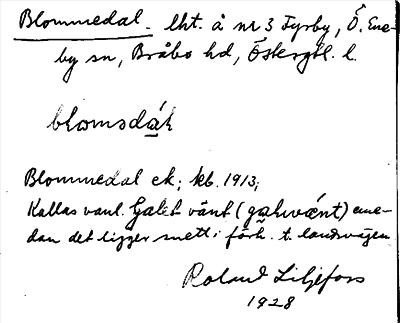 Blommedal. lht. å nr 3 Fyrby, Ö. Ene-
by sn, Bråbo hd, Östergötl. l.
blomsdák
Blommedal ek; kb. 1913;
Kallas vanl. Galet vänt (galwænt) eme-
dan det ligger snett i förh. t. landsvägen.
Roland Liljefors
1928